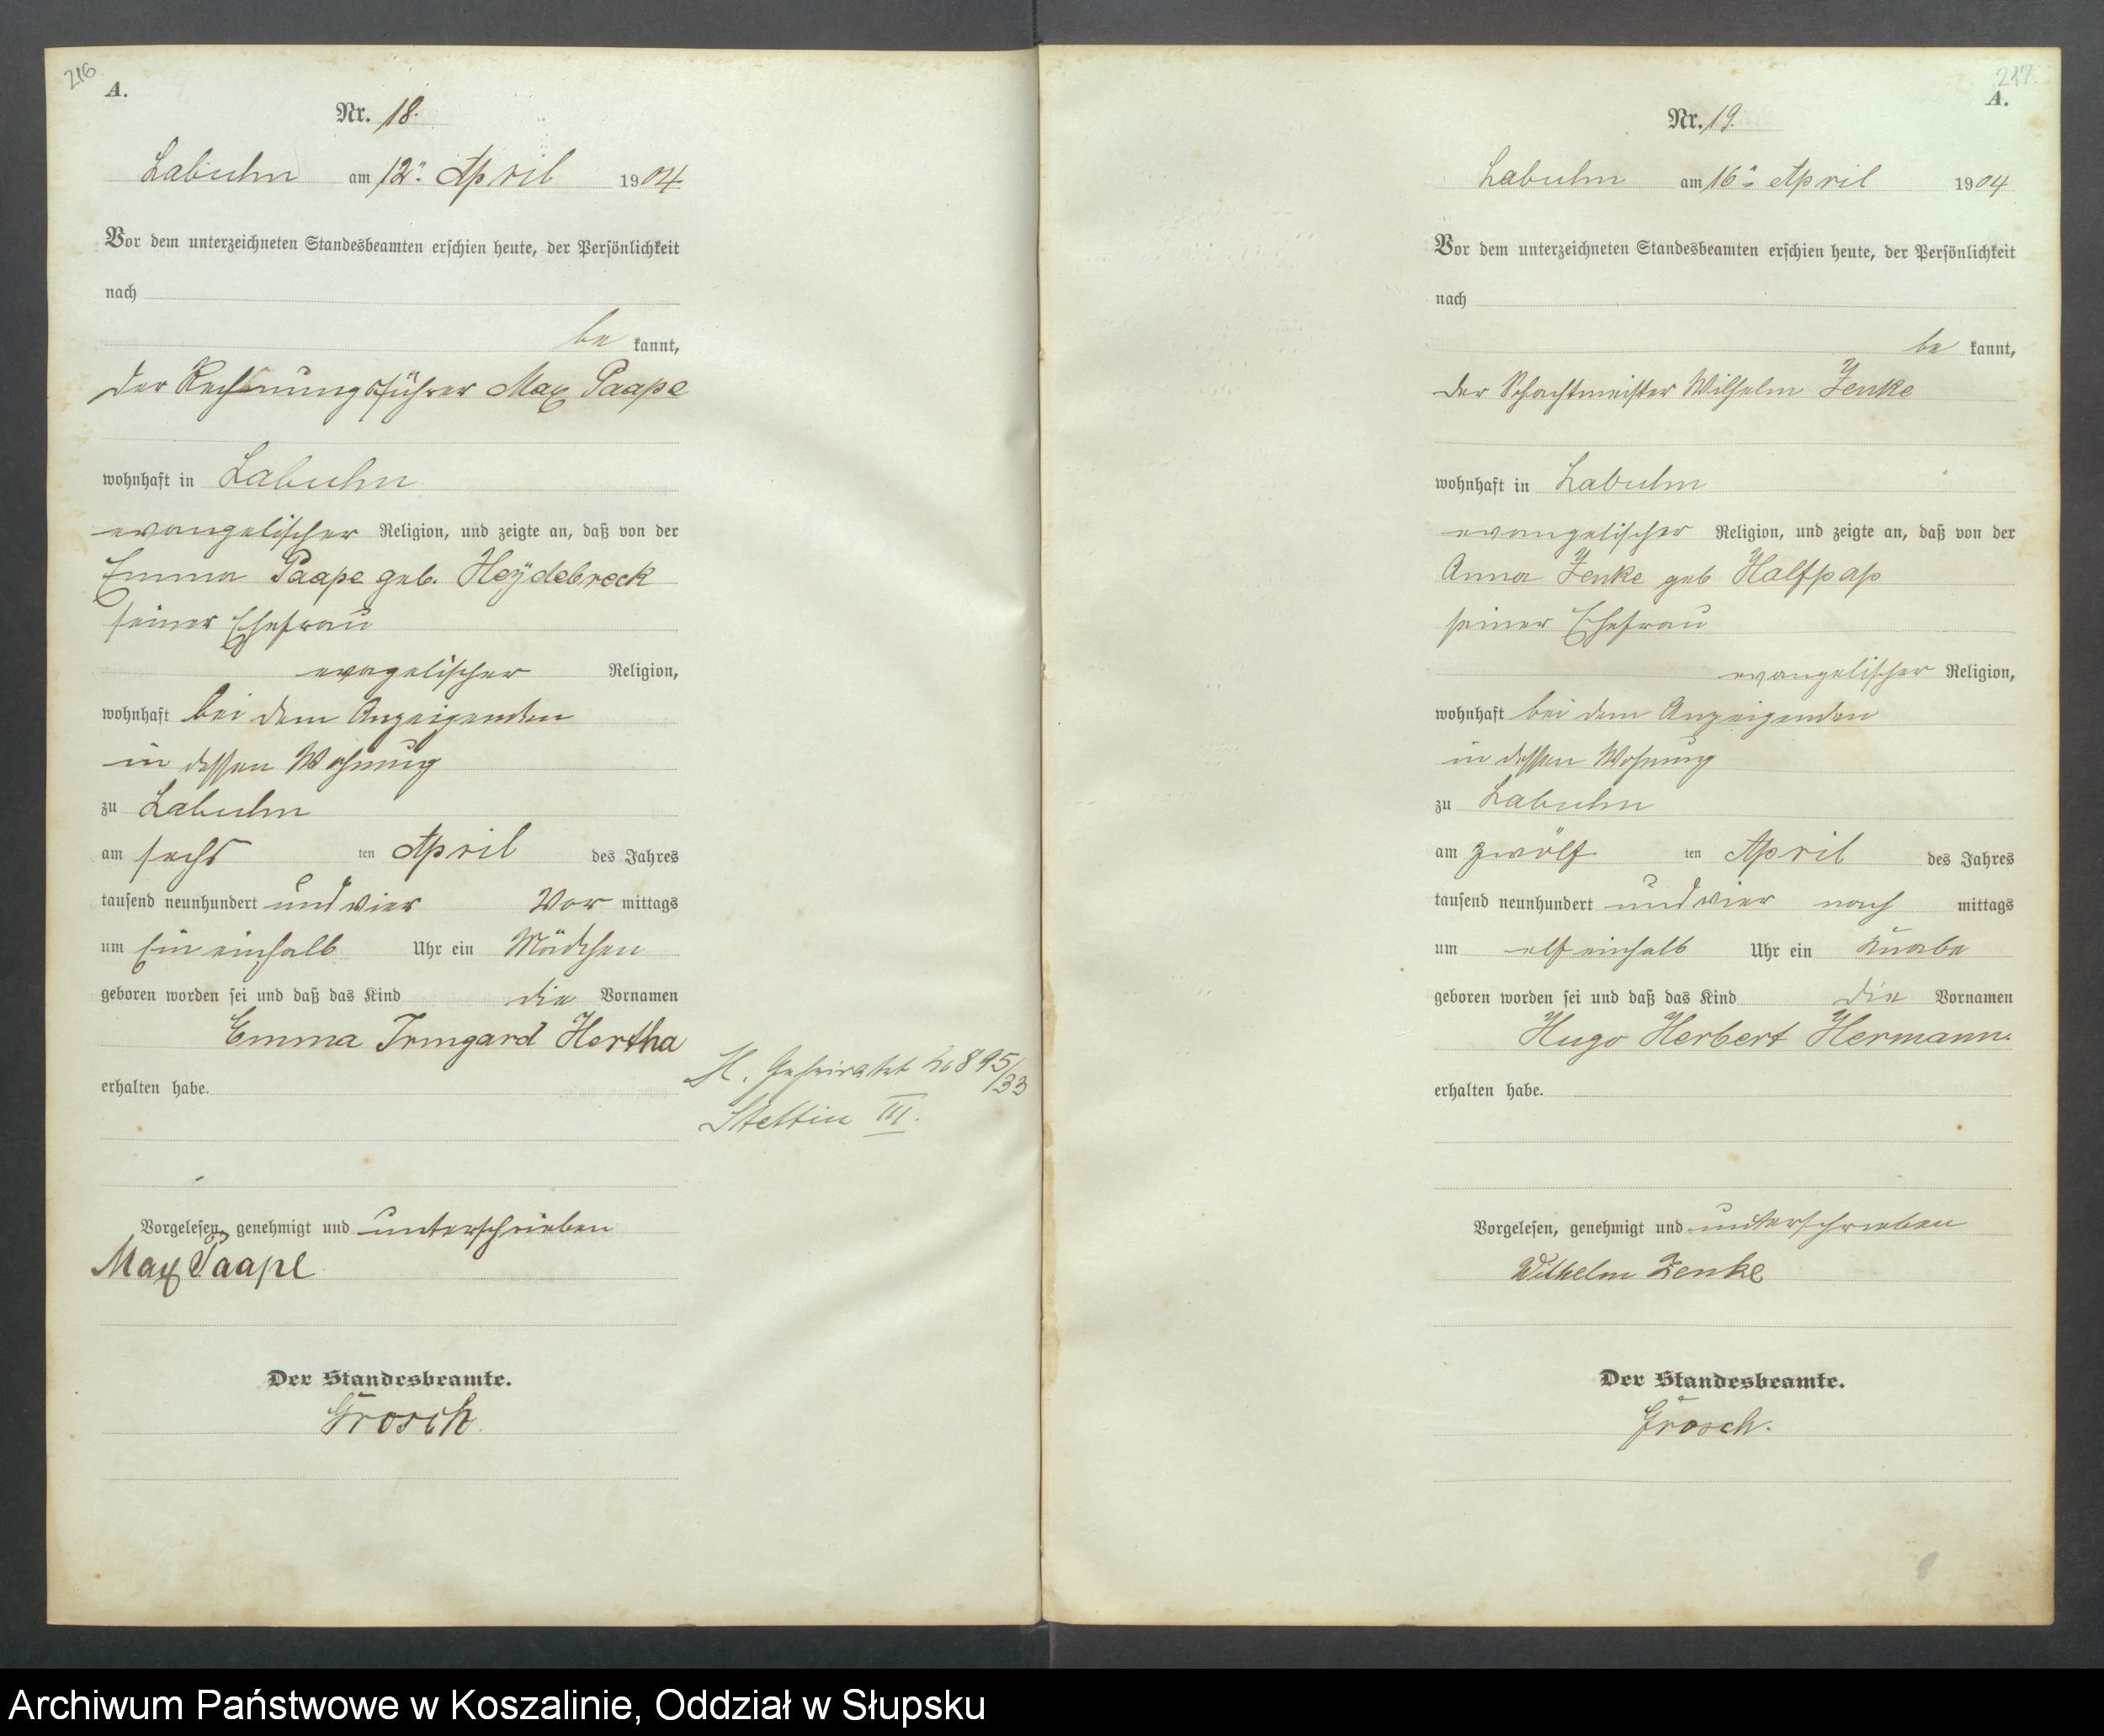 216
A.
Nr. 18.
Labuhn am 12n. April 1904
Vor dem unterzeichneten Standesbeamten erschien heute, der Persönlichkeit
nach
be kannt,
der Rechnungsführer Max Paape
wohnhaft in Labuhn
evangelischer Religion, und zeigte an, daß von der
Emma Paape geb. Heydebreck
seiner Ehefrau
evagelischer Religion,
wohnhaft bei dem Anzeigenden
in dessen Wohnung
zu Labuhn
am sechs ten April des Jahres
tausend neunhundert und vier Vor mittags
um Ein einhalb Uhr ein Mädchen
geboren worden sei und daß das Kind die Vornamen
Emma Irmgard Hertha
erhalten habe.
H. Geheiratet No 895/33
Stettin III.
Vorgelesen, genehmigt und unterschrieben
Max Paape
Der Standesbeamte.
Grosch
217.
A.
Nr. 19.
Labuhn am 16n April 1904
Vor dem unterzeichneten Standesbeamten erschien heute, der Persönlichkeit
nach
be kannt,
der Schachtmeister Wilhelm Zenke
wohnhaft in Labuhn
evangelischer Religion, und zeigte an, daß von der
Anna Zenke geb Halfpap
seiner Ehefrau
evangelischer Religion,
wohnhaft bei dem Anzeigenden
in dessen Wohnung
zu Labuhn
am zwölf ten April des Jahres
tausend neunhundert und vier nach mittags
um elf einhalb Uhr ein Knabe
geboren worden sei und daß das Kind die Vornamen
Hugo Herbert Hermann.
erhalten habe.
Vorgelesen, genehmigt und unterschrieben
Wilhelm Zenke
Der Standesbeamte.
Grosch.
Archiwum Państwowe w Koszalinie, Oddział w Słupsku